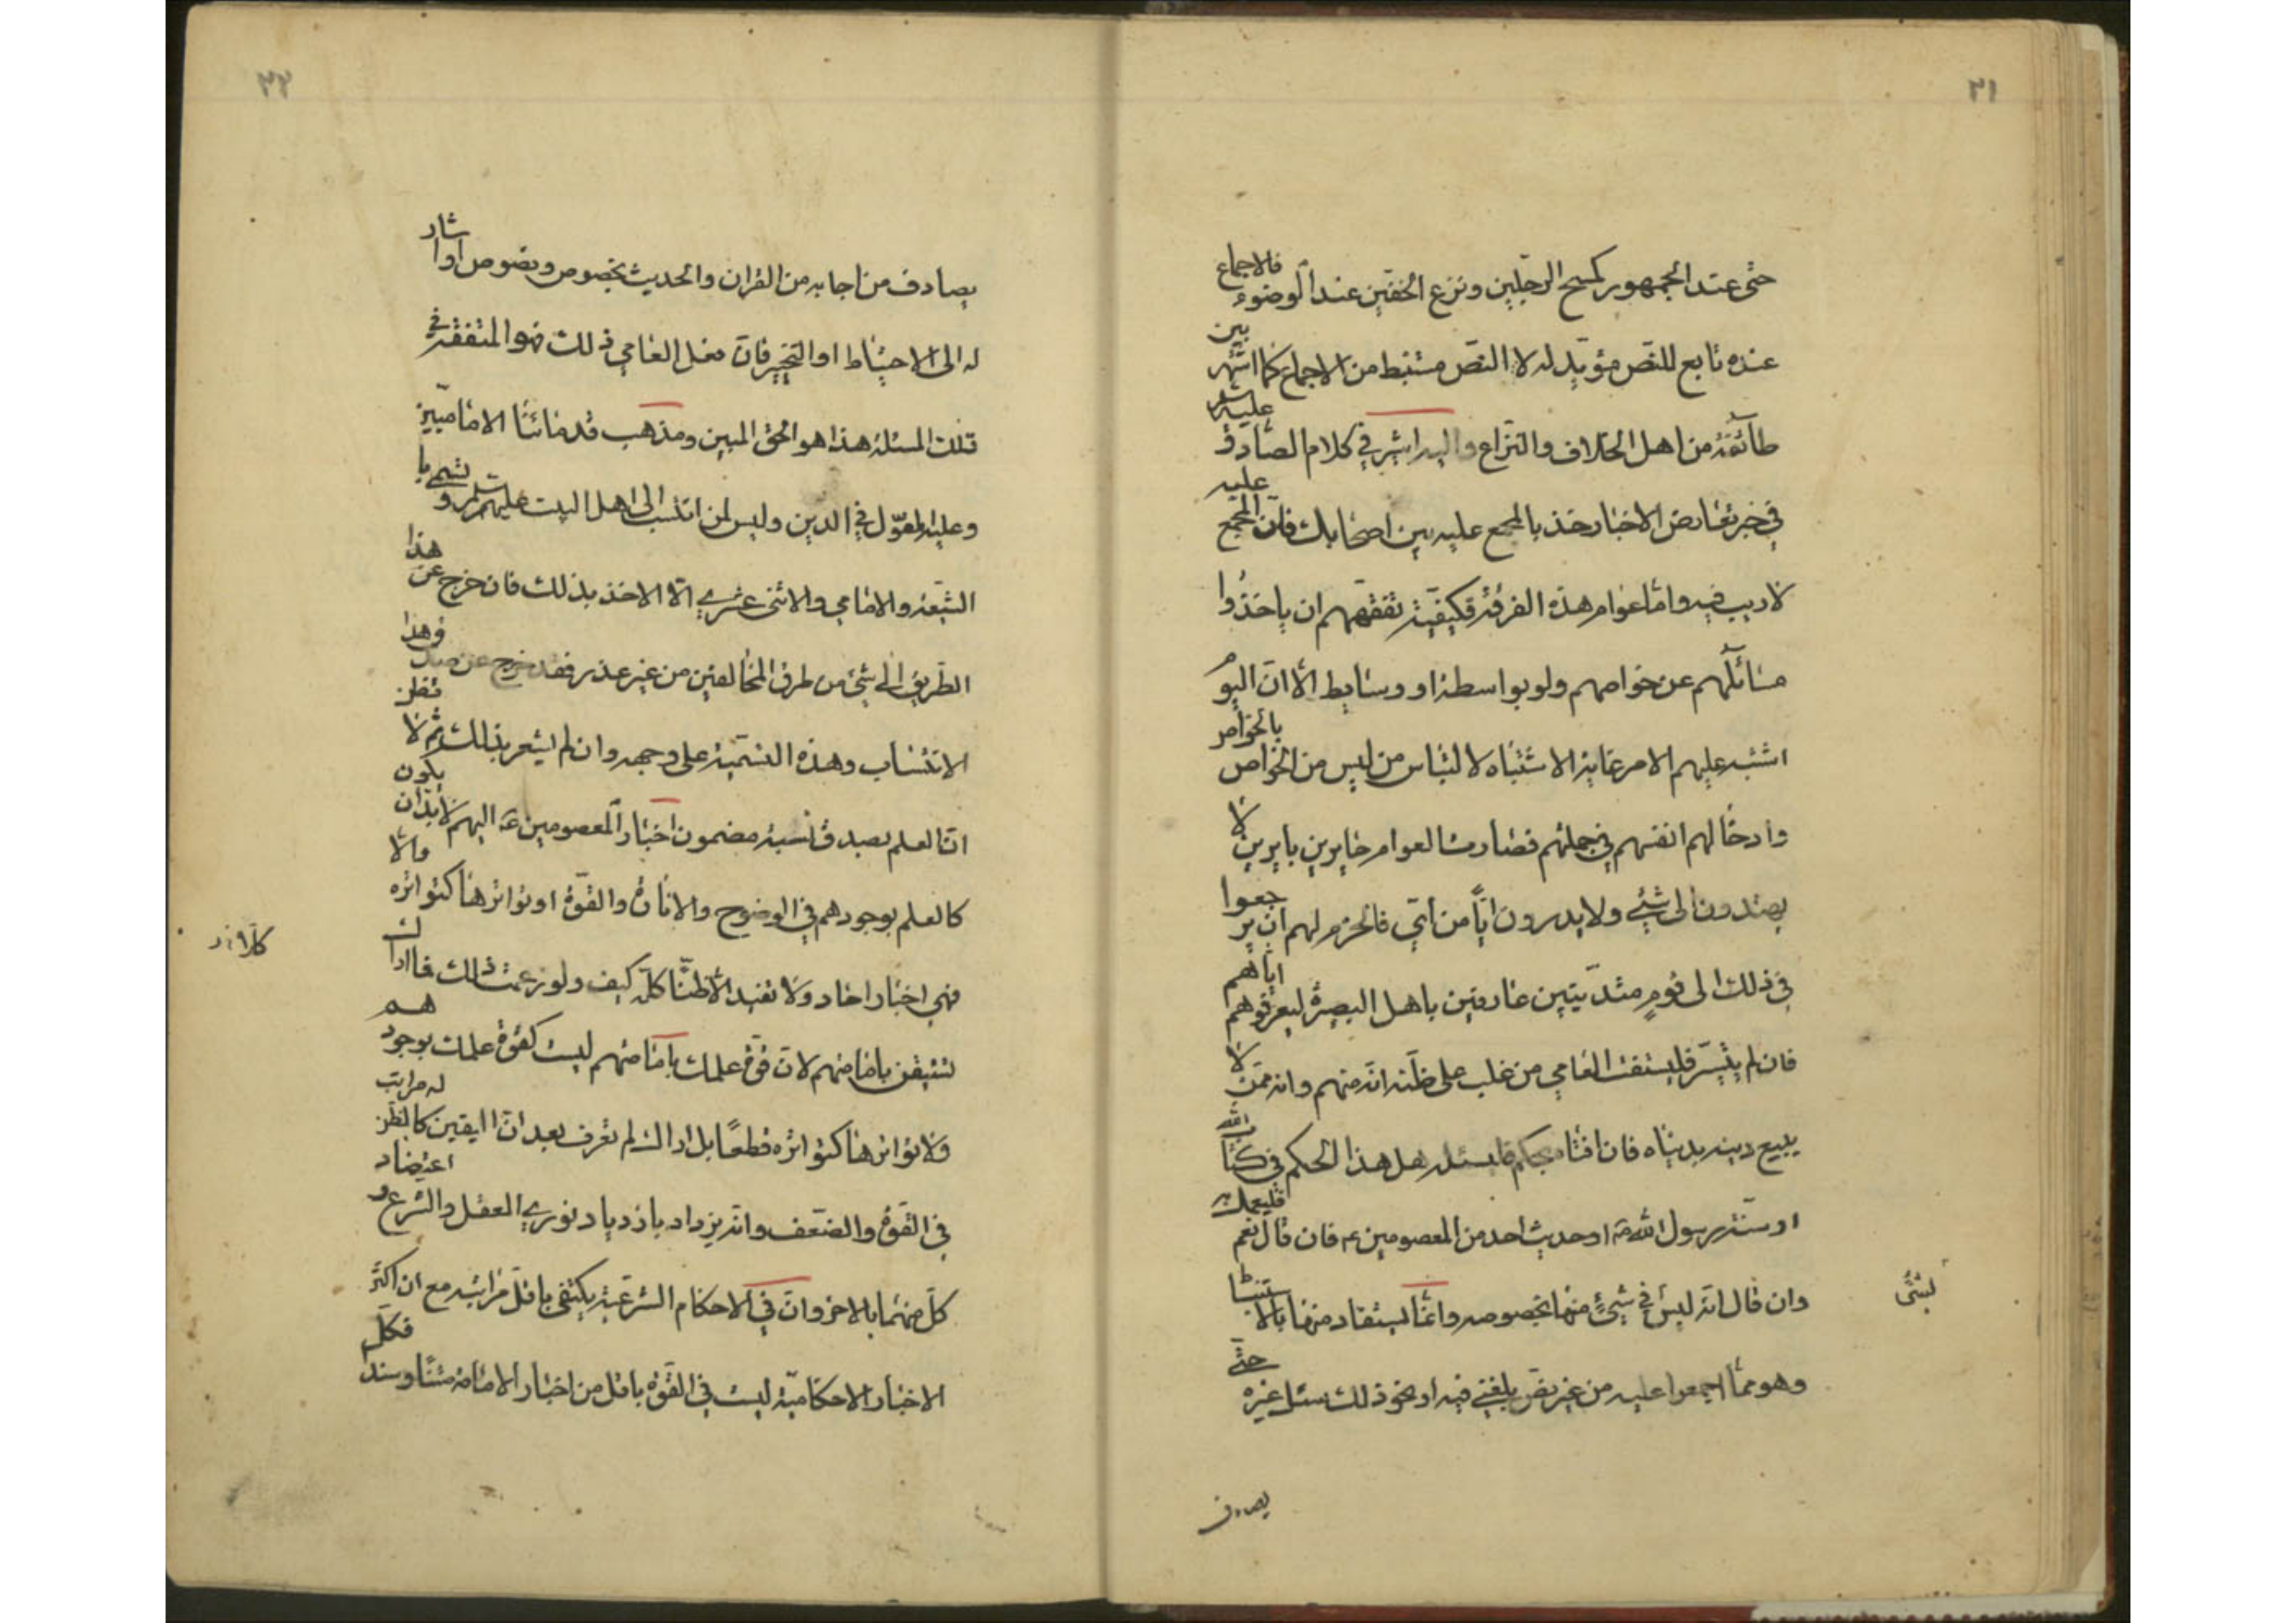 ٢١
حتى عند الجمهور كمسح الرجلين ونزع الخفين عند الوضوء فالاجماع
عنده تابع للنص مؤيد له لا النص مستنبط من الاجماع كما اشتهر بين
طائفة من اهل الخلاف والنزاع واليه اشير في كلام الصادق عليه السلم
في خبر تعارض الاخبار خذ بالمجمع عليه بين اصحابك فان المجمع عليه
لا ريب فيه واما عوام هذه الفرقة فكيفية تفقههم ان ياخذوا
مسائلهم عن خواصهم ولو بواسطة او وسايط الا ان اليوم
اشتبه عليهم الامر غاية الاشتباه لالتباس من ليس من الخواص بالخواص
وادخالهم انفسهم في جملتهم فصارت العوام حايرين بايرين لا
يهتدون الى شيئ ولا يدرون ايا من اي فالحزم لهم ان يرجعوا
في ذلك الى قوم متدينين عارفين باهل البصيرة ليعرفوهم اياهم
فان لم يتيسر فليستفت العامي من غلب على ظنه انه منهم وانه ممن لا
يبيع دينه بدنياه فان افتاه بحكم فليسئله هل هذا الحكم في كتاب الله
او سنة رسول الله ص او حديث احد من المعصومين ع فان قال نعم فليعمل به
وان قال انه ليس في شيئ منها بخصوصه وانما يستفاد منها بالاستنباط
وهو مما اجمعوا عليه من غير نص بلغني فيه او نحو ذلك سئل غيره حتى
يصادف
٢٢
يصادف من اجابه من القران والحديث بخصوص وبصوص او اشار
له الى الاحتياط او التخيير فان فعل العامي ذلك فهو المتفقه في
تلك المسئلة هذا هو الحق المبين ومذهب قدمائنا الاماميين
وعليه المعول في الدين وليس لمن انتسب الى اهل البيت عليهم السلم وتسمى با
الشيعة والامامي والاثنى عشري الا الاخذ بذلك فان خرج عن هذا
الطريق الى شيئ من طرق المخالفين من غير عذر فقد خرج عن هذا
الانتساب وهذه التسمية على وجهه وان لم يشعر بذلك ثم لا تظن
ان العلم بصدق نسبة مضمون اخبار المعصومين ع اليهم لا بد ان يكون
كالعلم بوجودهم في الوضوح والانارة والقوة او تواترها كتواتره والا
فهي اخبار احاد ولا تفيد الا ظنا كلا كيف ولو زعمت ذلك فما اراك
تستيقن بامامتهم لان قوة علمك بامامتهم ليست كقوة علمك بوجودهم
ولا تواترها كتواتره قطعا بل اراك لم تعرف بعد ان اليقين كالظن له مراتب
في القوة والضعف وانه يزداد بازدياد نوري العقل والشرع واعتضاد
كل منهما بالاخر وان في الاحكام الشرعية يكتفى باقل مراتبه مع ان اكثر
الاخبار الاحكامية ليست في القوة باقل من اخبار الامامة متنا وسندا فكل